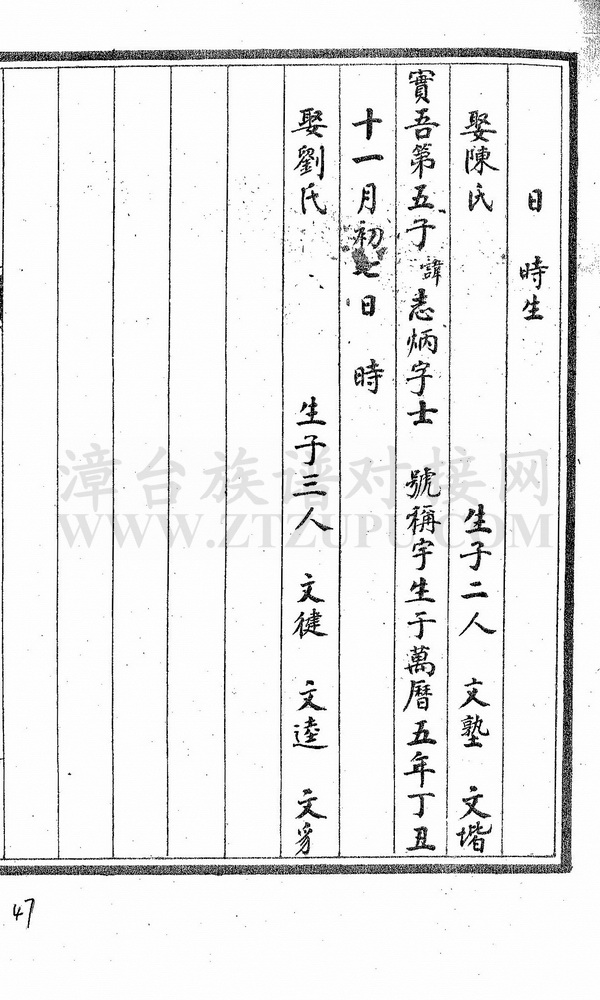 日 時生
娶陳氏 生子二人 文塾 文堦
實吾第五子 諱志炳字士 號稱宇生于萬曆五年丁丑
十一月初七日 時
娶劉氏 生子三人 文健 文逵
漳台族谱对接网
WWW.ZTZUPU.COM
47